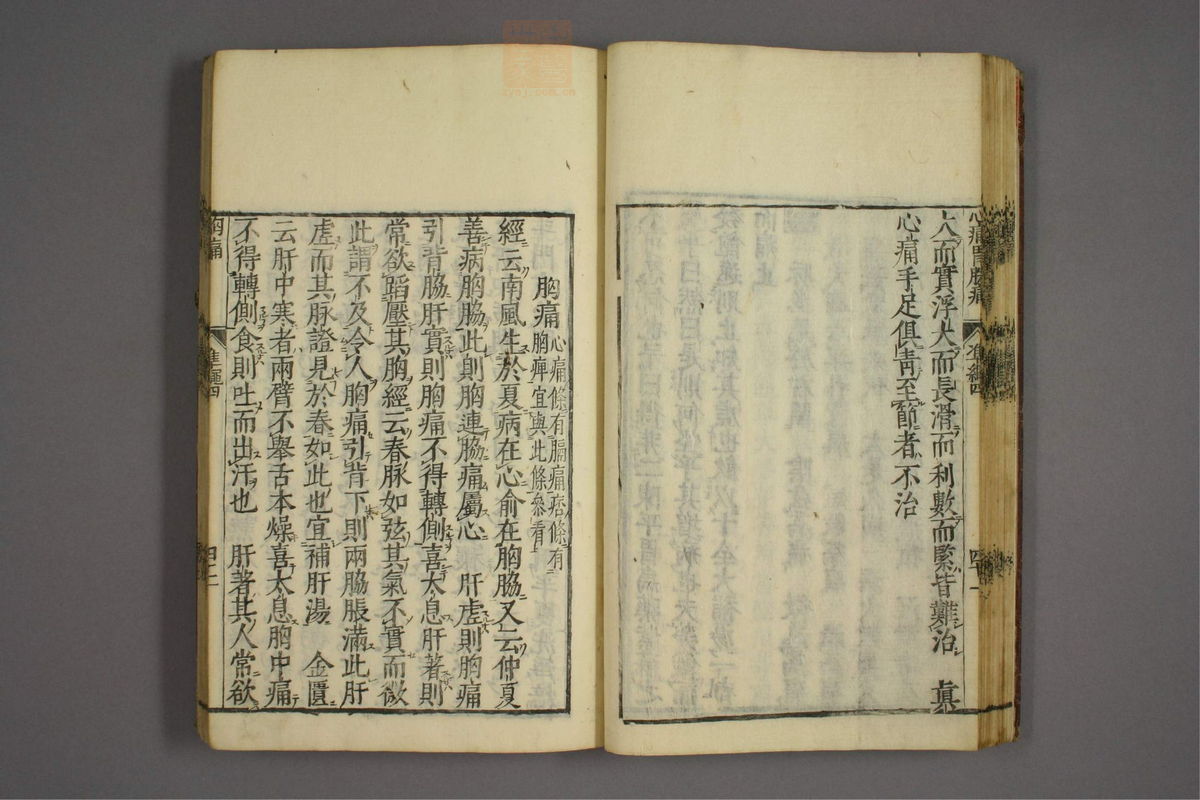 心痛胃脘痛
準繩四
四十一
大而實浮大而長滑而利數而緊皆難治　眞
心痛手足俱靑至節者不治
胸痛
心痛條有膈痛痞條有
胸痺宜與此條參看
經云南風生於夏病在心俞在胸脇又云仲夏
善病胸脇此則胸連脇痛屬心　肝虛則胸痛
引背脇肝實則胸痛不得轉側喜太息肝著則
常欲蹈壓其胸經云春脉如弦其氣不實而微
此謂不及令人胸痛引背下則兩脇脹滿此肝
虛而其脉證見於春如此也宜補肝湯　金匱
云肝中寒者兩臂不舉舌本燥喜太息胸中痛
不得轉側食則吐而出汗也　肝著其人常欲
胸痛
準繩四
四十二